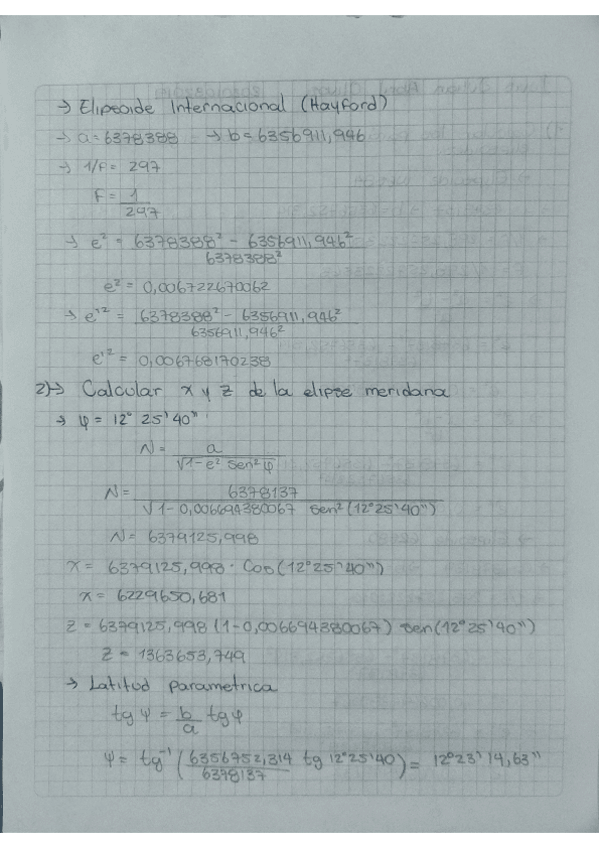 → Elipsoide Internacional (Hayford)
→ a = 6378388 → b = 6356911,946
→ 1/F = 297
F = 1/297
→ e² = 6378388² - 6356911,946² / 6378388²
e² = 0,006722670062
→ e'² = 6378388² - 6356911,946² / 6356911,946²
e'² = 0,006768170238
2)→ Calcular x y z de la elipse meridana
→ φ = 12° 25' 40"
N = a / √1-e² sen²φ
N = 6378137 / √1-0,006694380067 sen²(12°25'40")
N = 6379125,998
x = 6379125,998 · Cos(12°25'40")
x = 6229650,681
z = 6379125,998 (1-0,006694380067) sen(12°25'40")
z = 1363653,749
→ Latitud parametrica
tg ψ = b/a tg φ
ψ = tg⁻¹ (6356752,314/6378137 tg 12°25'40) = 12°23'14,63"